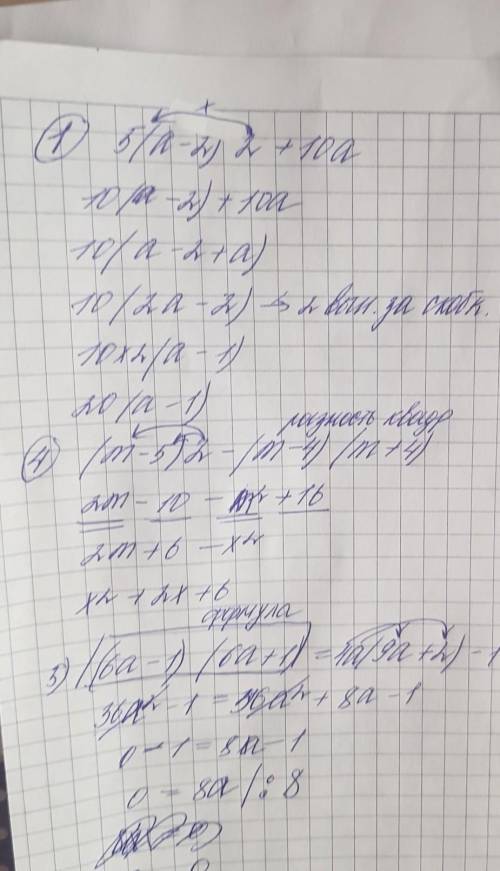 x
1 5(a-2) 2 + 10a
10(a-2)+10a
10(a-2+a)
10(2a-2) → 2 вын. за скобк.
10×2(a-1)
20(a-1)
разность квадр
4 (m-5)2-(m-4)(m+4)
2m-10-m²+16
2m+6-x2
x2+2x+6
формула
5) (6a-1)(6a+1)=4a(9a+2)-1
36a²-1=36a²+8a-1
0-1=8a-1
0=8a/:8